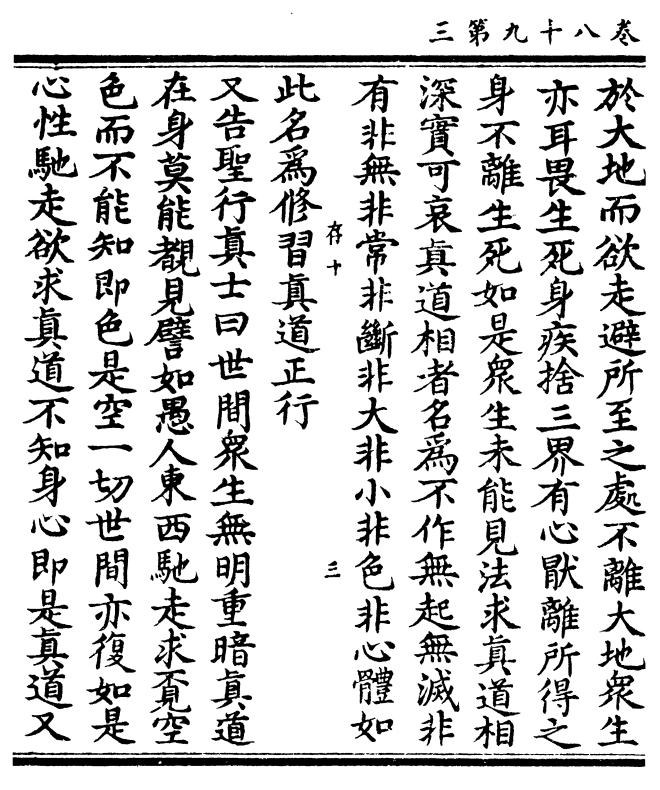 卷八十九第三
於大地而欲走避所至之處不離大地眾生
亦耳畏生死身疾捨三界有心猒離所得之
身不離生死如是眾生未能見法求真道相
深實可哀真道相者名為不作無起無滅非
有非無非常非斷非大非小非色非心體如
存十 三
此名為修習真道正行
又告聖行真士曰世間眾生無明重暗真道
在身莫能覩見譬如愚人東西馳走求覔空
色而不能知即色是空一切世間亦復如是
心性馳走欲求真道不知身心即是真道又